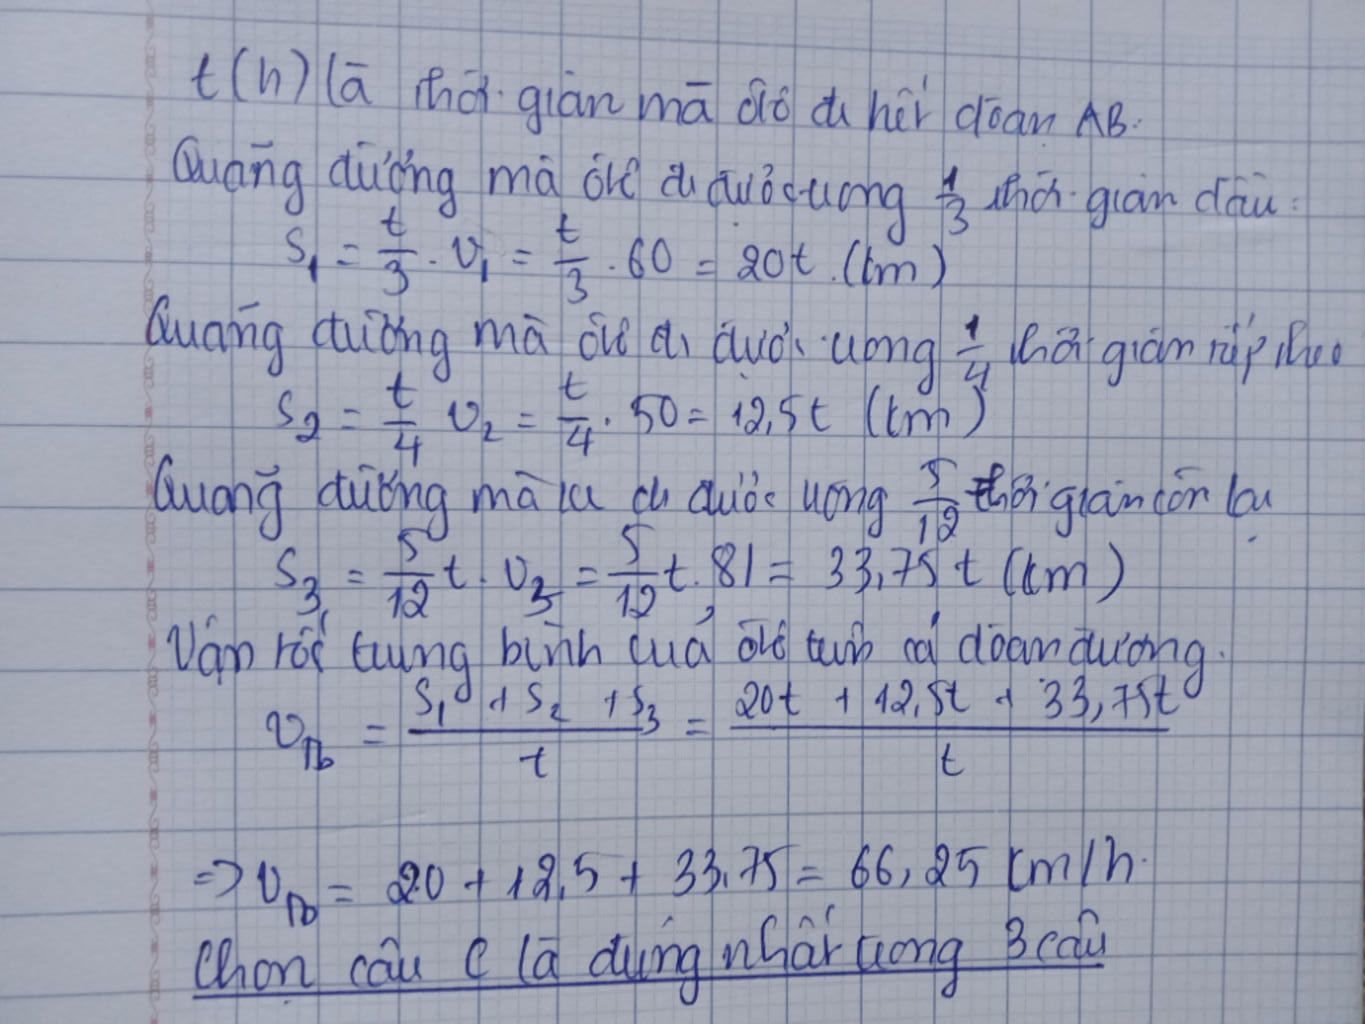 t(h) là thời gian mà ôtô đi hết đoạn AB.
Quãng đường mà ôtô đi được trong 1/3 thời gian đầu:
S₁ = t/3 . v₁ = t/3 . 60 = 20t (km)
Quãng đường mà ôtô đi được trong 1/4 thời gian tiếp theo
S₂ = t/4 v₂ = t/4 . 50 = 12,5t (km)
Quãng đường mà đi được trong 5/12 thời gian còn lại
S₃ = 5/12 t . v₃ = 5/12 t . 81 = 33,75 t (km)
Vận tốc trung bình của ôtô trên cả đoạn đường.
v_Tb = (S₁ + S₂ + S₃)/t = (20t + 12,5t + 33,75t)/t
=> v_Tb = 20 + 12,5 + 33,75 = 66,25 km/h.
Chọn câu C là đúng nhất trong 3 câu